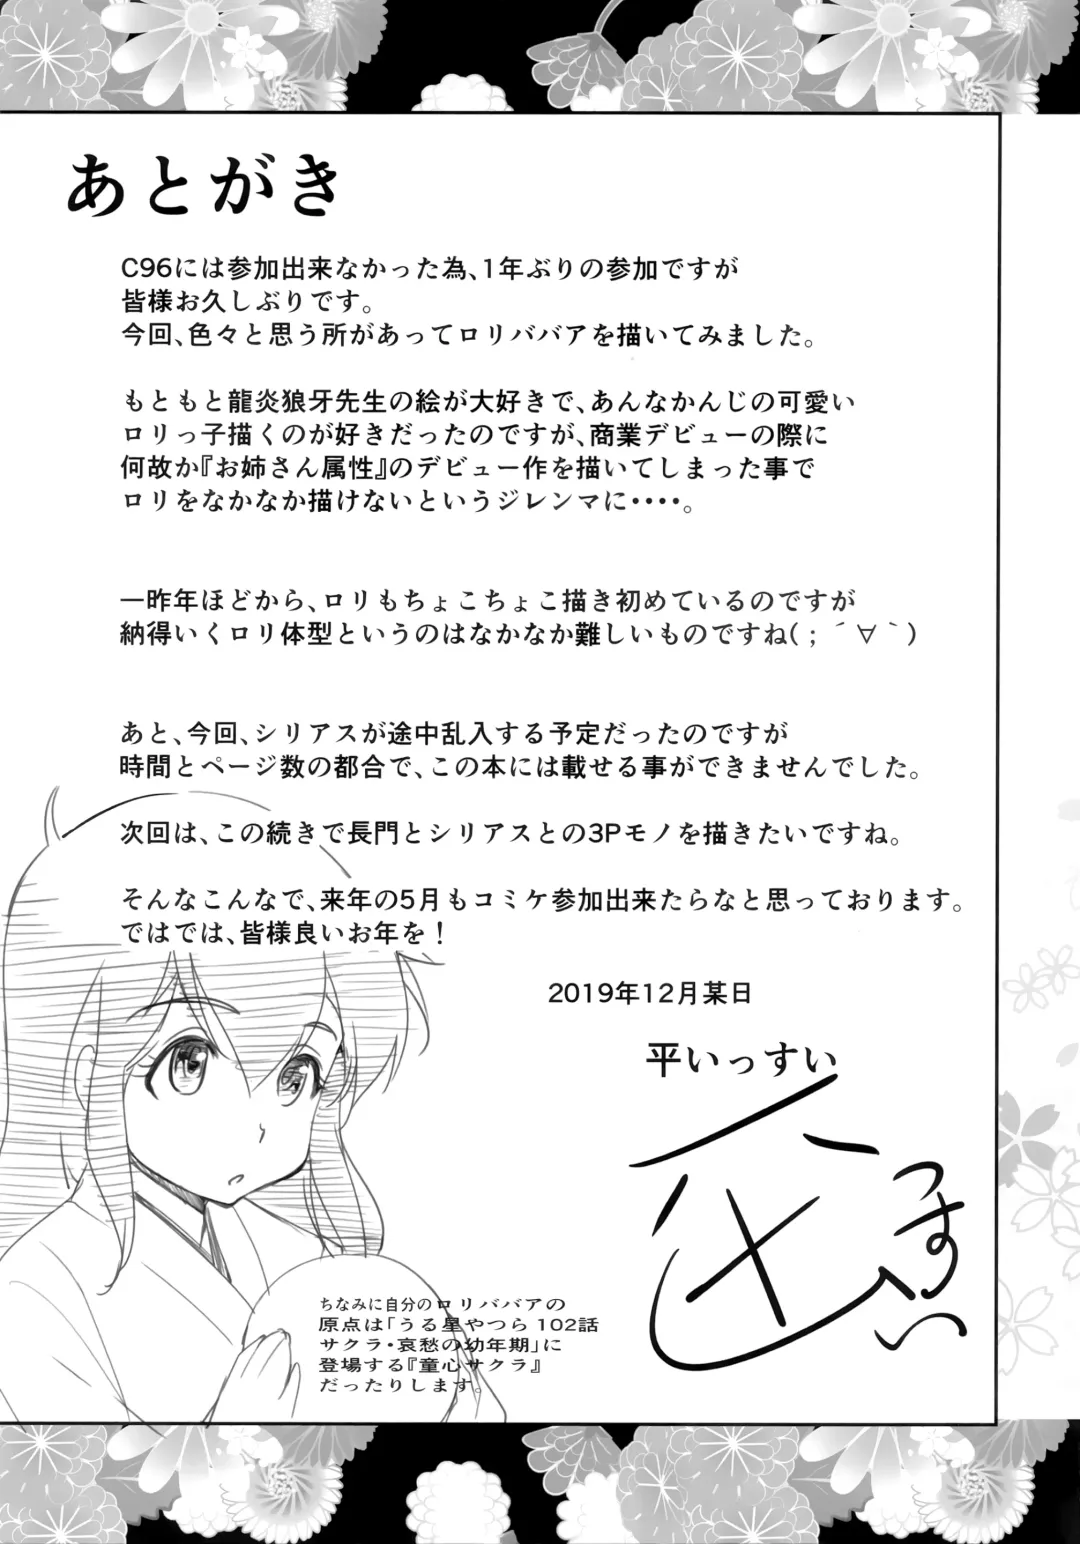 あとがき
C96には参加出来なかった為、1年ぶりの参加ですが
皆様お久しぶりです。
今回、色々と思う所があってロリババアを描いてみました。
もともと龍炎狼牙先生の絵が大好きで、あんなかんじの可愛い
ロリっ子描くのが好きだったのですが、商業デビューの際に
何故か『お姉さん属性』のデビュー作を描いてしまった事で
ロリをなかなか描けないというジレンマに・・・・。
一昨年ほどから、ロリもちょこちょこ描き初めているのですが
納得いくロリ体型というのはなかなか難しいものですね(；´∀｀)
あと、今回、シリアスが途中乱入する予定だったのですが
時間とページ数の都合で、この本には載せる事ができませんでした。
次回は、この続きで長門とシリアスとの3Pモノを描きたいですね。
そんなこんなで、来年の5月もコミケ参加出来たらなと思っております。
ではでは、皆様良いお年を！
2019年12月某日
平いっすい
平いっすい
ちなみに自分のロリババアの
原点は「うる星やつら102話
サクラ・哀愁の幼年期」に
登場する『童心サクラ』
だったりします。